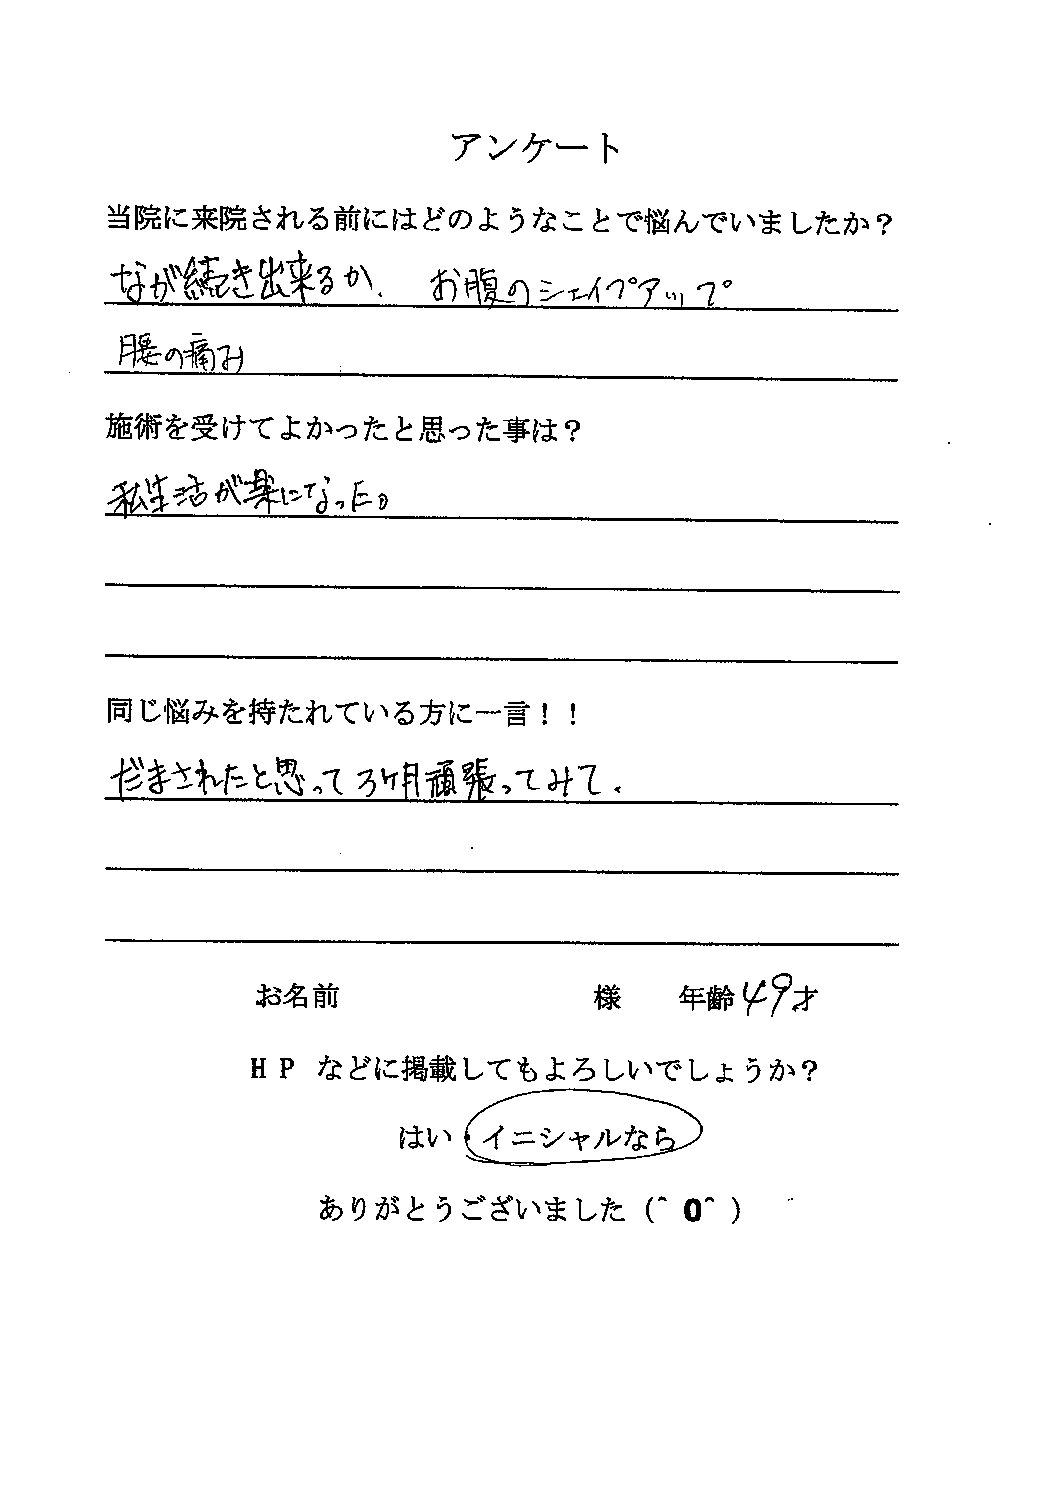 アンケート
当院に来院される前にはどのようなことで悩んでいましたか？
なが続き出来るか、お腹のシェイプアップ
腰の痛み
施術を受けてよかったと思った事は？
私生活が楽になった。
同じ悩みを持たれている方に一言！！
だまされたと思って3ヶ月頑張ってみて。
お名前 様 年齢 49才
ＨＰ などに掲載してもよろしいでしょうか？
はい・イニシャルなら
ありがとうございました（＾０＾）